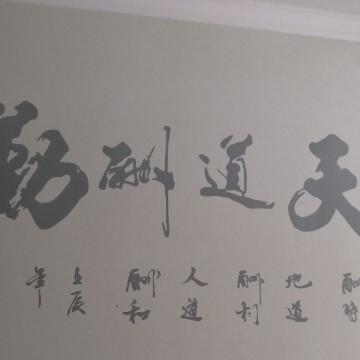 天道酬勤
酬時
地道
酬利
人道
酬和
壬辰
年